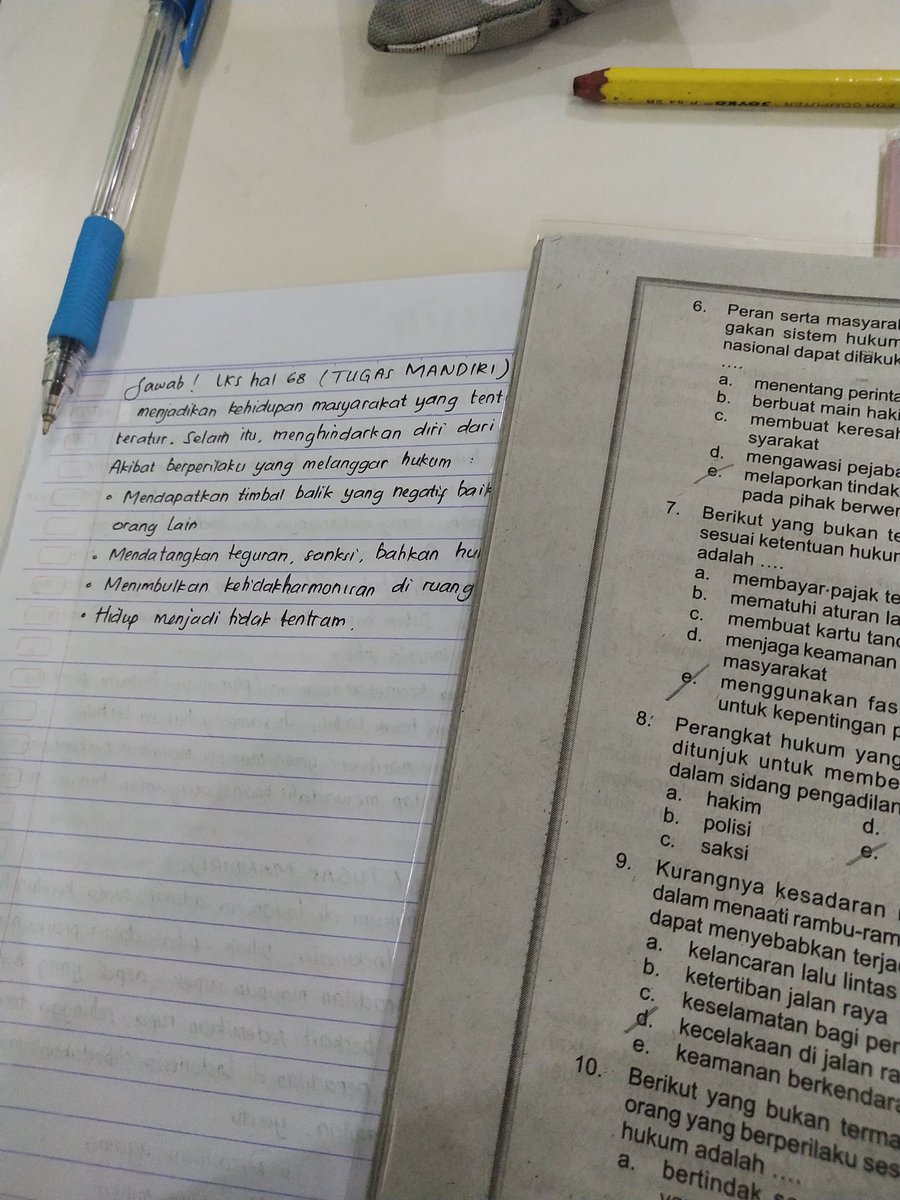 JOYKO P-94 2B FOR COMPUTER
Jawab! LKS hal 68 (TUGAS MANDIRI)
menjadikan kehidupan masyarakat yang tent
teratur. Selain itu, menghindarkan diri dari
Akibat berperilaku yang melanggar hukum :
• Mendapatkan timbal balik yang negatif baik
orang lain
• Mendatangkan teguran, sanksi, bahkan hu
• Menimbulkan ketidakharmonisan di ruang
• Hidup menjadi tidak tentram.
6. Peran serta masyarak
gakan sistem hukum
nasional dapat dilakuk
....
a. menentang perinta
b. berbuat main haki
c. membuat keresah
syarakat
d. mengawasi pejaba
e. melaporkan tindak
pada pihak berwen
7. Berikut yang bukan te
sesuai ketentuan hukum
adalah ....
a. membayar pajak te
b. mematuhi aturan la
c. membuat kartu tand
d. menjaga keamanan
masyarakat
e. menggunakan fas
untuk kepentingan p
8. Perangkat hukum yang
ditunjuk untuk membe
dalam sidang pengadilan
a. hakim d.
b. polisi e.
c. saksi
9. Kurangnya kesadaran
dalam menaati rambu-ram
dapat menyebabkan terja
a. kelancaran lalu lintas
b. ketertiban jalan raya
c. keselamatan bagi pen
d. kecelakaan di jalan ra
e. keamanan berkendara
10. Berikut yang bukan terma
orang yang berperilaku ses
hukum adalah ....
a. bertindak